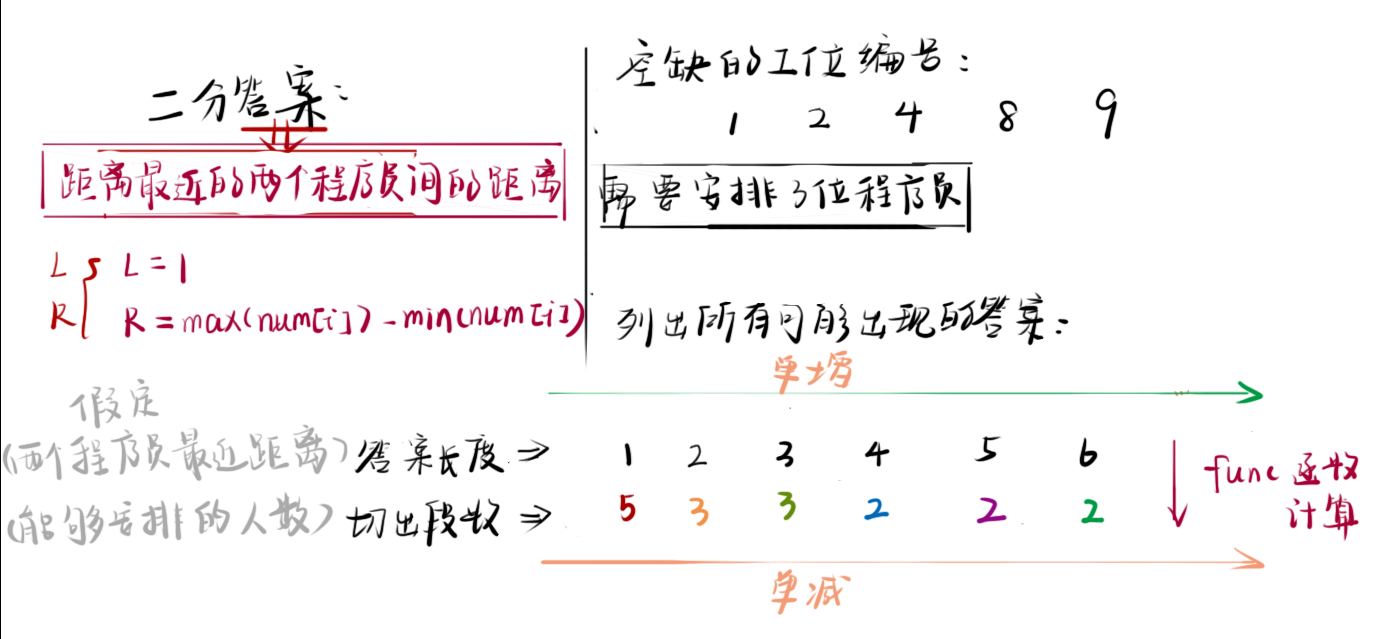 二分答案：
距离最近的两个程序员间的距离
L { L = 1
R { R = max(num[i]) - min(num[i])
空缺的工位编号：
1 2 4 8 9
需要安排3位程序员
列出所有可能出现的答案：
单增
假定
(两个程序员最近距离) 答案长度 ⇒ 1 2 3 4 5 6
(能够安排的人数) 切出段数 ⇒ 5 3 3 2 2 2
func 函数
计算
单减